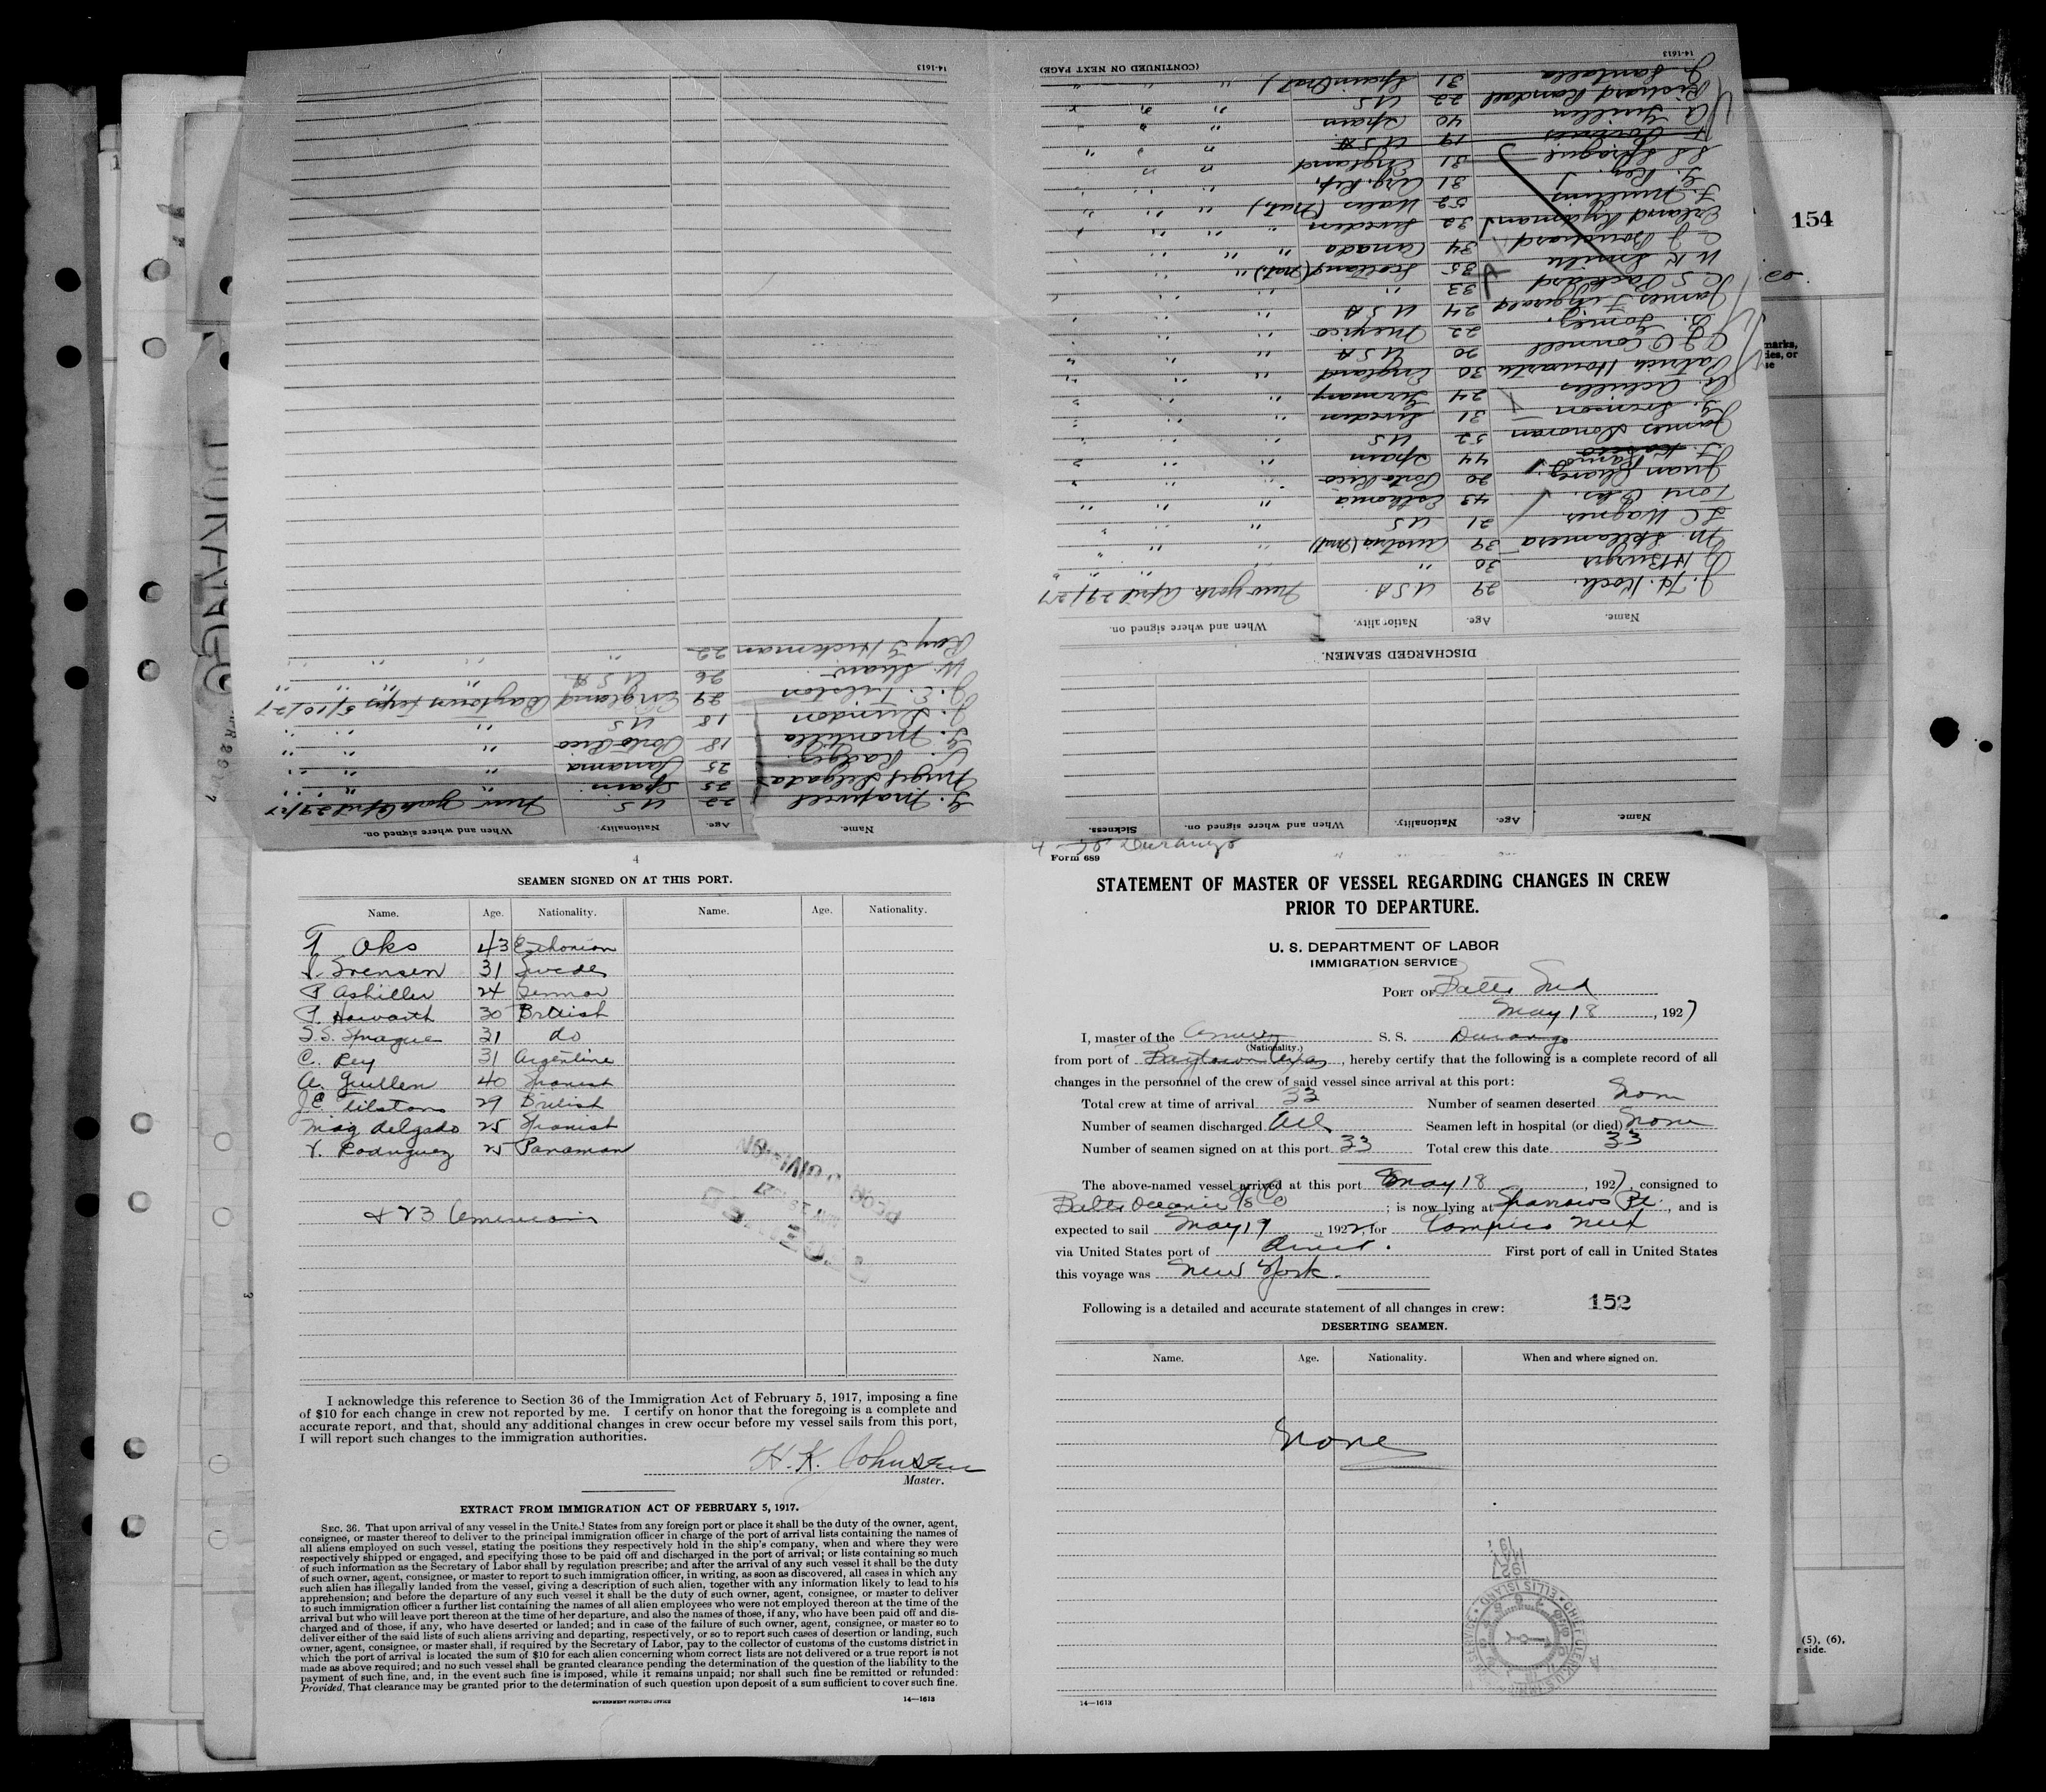 154
4
SEAMEN SIGNED ON AT THIS PORT.
Name. Age. Nationality. Name. Age. Nationality.
T Oks 43 Esthonian
S. Srensen 31 Swedes
P Ashiller 24 German
P. Howarth 30 British
S.S. Sprague 31 do
C. Rey 31 Argentine
A. Guillen 40 Spanish
J.E. Tilstons 29 British
Mig delgado 25 Spanish
V. Rodriguez 25 Panaman
& 23 Americans
I acknowledge this reference to Section 36 of the Immigration Act of February 5, 1917, imposing a fine
of $10 for each change in crew not reported by me. I certify on honor that the foregoing is a complete and
accurate report, and that, should any additional changes in crew occur before my vessel sails from this port,
I will report such changes to the immigration authorities.
H. K. Johnsen
Master.
EXTRACT FROM IMMIGRATION ACT OF FEBRUARY 5, 1917.
SEC. 36. That upon arrival of any vessel in the United States from any foreign port or place it shall be the duty of the owner, agent,
consignee, or master thereof to deliver to the principal immigration officer in charge of the port of arrival lists containing the names of
all aliens employed on such vessel, stating the positions they respectively hold in the ship's company, when and where they were
respectively shipped or engaged, and specifying those to be paid off and discharged in the port of arrival; or lists containing so much
of such information as the Secretary of Labor shall by regulation prescribe; and after the arrival of any such vessel it shall be the duty
of such owner, agent, consignee, or master to report to such immigration officer, in writing, as soon as discovered, all cases in which any
such alien has illegally landed from the vessel, giving a description of such alien, together with any information likely to lead to his
apprehension; and before the departure of any such vessel it shall be the duty of such owner, agent, consignee, or master to deliver
to such immigration officer a further list containing the names of all alien employees who were not employed thereon at the time of the
arrival but who will leave port thereon at the time of her departure, and also the names of those, if any, who have been paid off and dis-
charged and of those, if any, who have deserted or landed; and in case of the failure of such owner, agent, consignee, or master so to
deliver either of the said lists of such aliens arriving and departing, respectively, or so to report such cases of desertion or landing, such
owner, agent, consignee, or master shall, if required by the Secretary of Labor, pay to the collector of customs of the customs district in
which the port of arrival is located the sum of $10 for each alien concerning whom correct lists are not delivered or a true report is not
made as above required; and no such vessel shall be granted clearance pending the determination of the question of the liability to the
payment of such fine, and, in the event such fine is imposed, while it remains unpaid; nor shall such fine be remitted or refunded:
Provided, That clearance may be granted prior to the determination of such question upon deposit of a sum sufficient to cover such fine.
GOVERNMENT PRINTING OFFICE 14—1613
SS. Durango
Form 689
STATEMENT OF MASTER OF VESSEL REGARDING CHANGES IN CREW
PRIOR TO DEPARTURE.
U. S. DEPARTMENT OF LABOR
IMMIGRATION SERVICE
PORT OF Balto Md
May 18, 1927
I, master of the S. S. Durango
(Nationality.)
from port of Baytown Texas, hereby certify that the following is a complete record of all
changes in the personnel of the crew of said vessel since arrival at this port:
Total crew at time of arrival 33 Number of seamen deserted None
Number of seamen discharged All Seamen left in hospital (or died) None
Number of seamen signed on at this port 33 Total crew this date 33
The above-named vessel arrived at this port May 18, 1927, consigned to
Balto Oceanic SS Co; is now lying at Sparrows Pt., and is
expected to sail May 19 1927, for Tampico Mex
via United States port of direct. First port of call in United States
this voyage was New York.
Following is a detailed and accurate statement of all changes in crew: 152
DESERTING SEAMEN.
Name. Age. Nationality. When and where signed on.
None
14—1613
Name. Age. Nationality. When and where signed on. Sickness.
DISCHARGED SEAMEN.
Name. Age. Nationality. When and where signed on.
J. H. Koch. 29 U S A. New York April 29/27
H Burges 30 " "
M. 39 Austria (Nat) "
L C Wagner 21 U S "
Toni Oks. 43 Esthonia "
Juan Suarez 20 Porto Rico "
F. Ramos 44 Spain "
James Donovan 52 U S "
G. Svenson 31 Sweden "
A. Achilles 24 Germany "
Patrick Howarth 30 England "
J O Connell 20 U S A "
B. Gomez. 22 Mexico "
James Fitzgerald 24 U S A "
K. S Packard 33 " "
W. K Smith 35 Scotland (nat) "
C. J Bouchard 34 Canada "
Erland Rydsman 32 Sweden "
F. Mullins 52 Wales (Nat.) "
G. Rey. 31 Arg. Rep. "
S S Sprague 31 England "
19 U S A "
A Guillen 40 Spain "
Richard Randall 22 U S "
J. Santalla 31 Spain (nat) "
(CONTINUED ON NEXT PAGE) 14-1613
Name. Age. Nationality. When and where signed on.
G. Maxwell 22 U S New York April 29/27
Migel Delgada 25 Spain "
V. Rodgis. 25 Panama "
G. Montilla 18 Porto Rico "
J. Lundon 18 U S "
J. E. Tilston 29 England Baytown Texas 5/10/27
W. Shaw 26 U S A "
Ray F Hickman 22 " "
14-1613
RECORD DIVISION
MAY 19 1927
RECEIVED
MAY 19 1927
ELLIS ISLAND
DURANGO
(5), (6),